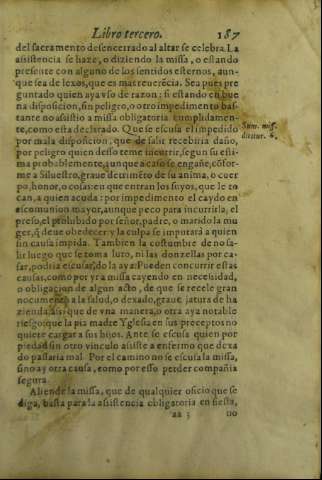 Libro tercero. 187
del sacramento desencerrado al altar se celebra. La
asistencia se haze, o diziendo la missa, o estando
presente con alguno de los sentidos esternos, aun-
que sea de lexos, que es mas reuerēcia. Sea pues pre
guntado quien aya vso de razon; si estando en bue
na disposicion, sin peligro, o otro impedimento bas-
tante no asistio a missa obligatoria cumplidamen-
te, como esta declarado. Que se escusa el impedido
por mala disposicion, que de salir recebiria daño,
por peligro quien desso teme incurrir, segun su esti-
ma probablemente, aunque acaso se engañe, cōfor-
me a Siluestro, graue detrimēto de su anima, o cuer
po, honor, o cosas: en que entran los suyos, que le to
can, a quien acuda: por impedimento el caydo en
escomunion mayor, aunque peco para incurrirla, el
preso, el prohibido por señor, padre, o marido la mu
ger, q̃ deue obedecer: y la culpa se imputara a quien
sin causa impida. Tambien la costumbre de no sa-
lir luego que se toma luto, ni las donzellas por ca-
sar, podria escusar, do la aya: Pueden concurrir estas
causas, como por yr a missa cayendo en necesidad,
o obligacion de algun acto, de que se recele gran
nocumento a la salud, o dexado, graue jatura de ha
zienda, asi que de vna manera, o otra aya notable
riesgo: que la pia madre Yglesia en sus preceptos no
quiere cargar a sus hijos. Ante se escusa quien por
piedad sin otro vinculo asiste a enfermo que dexa
do passaria mal. Por el camino no se escusa la missa,
sino ay otra causa, como por esso perder compañia
segura.
Aliende la missa, que de qualquier oficio que se
diga, basta para la asistencia obligatoria en fiesta,
aa 3 no
Sum. miss.
dicitur. 6.